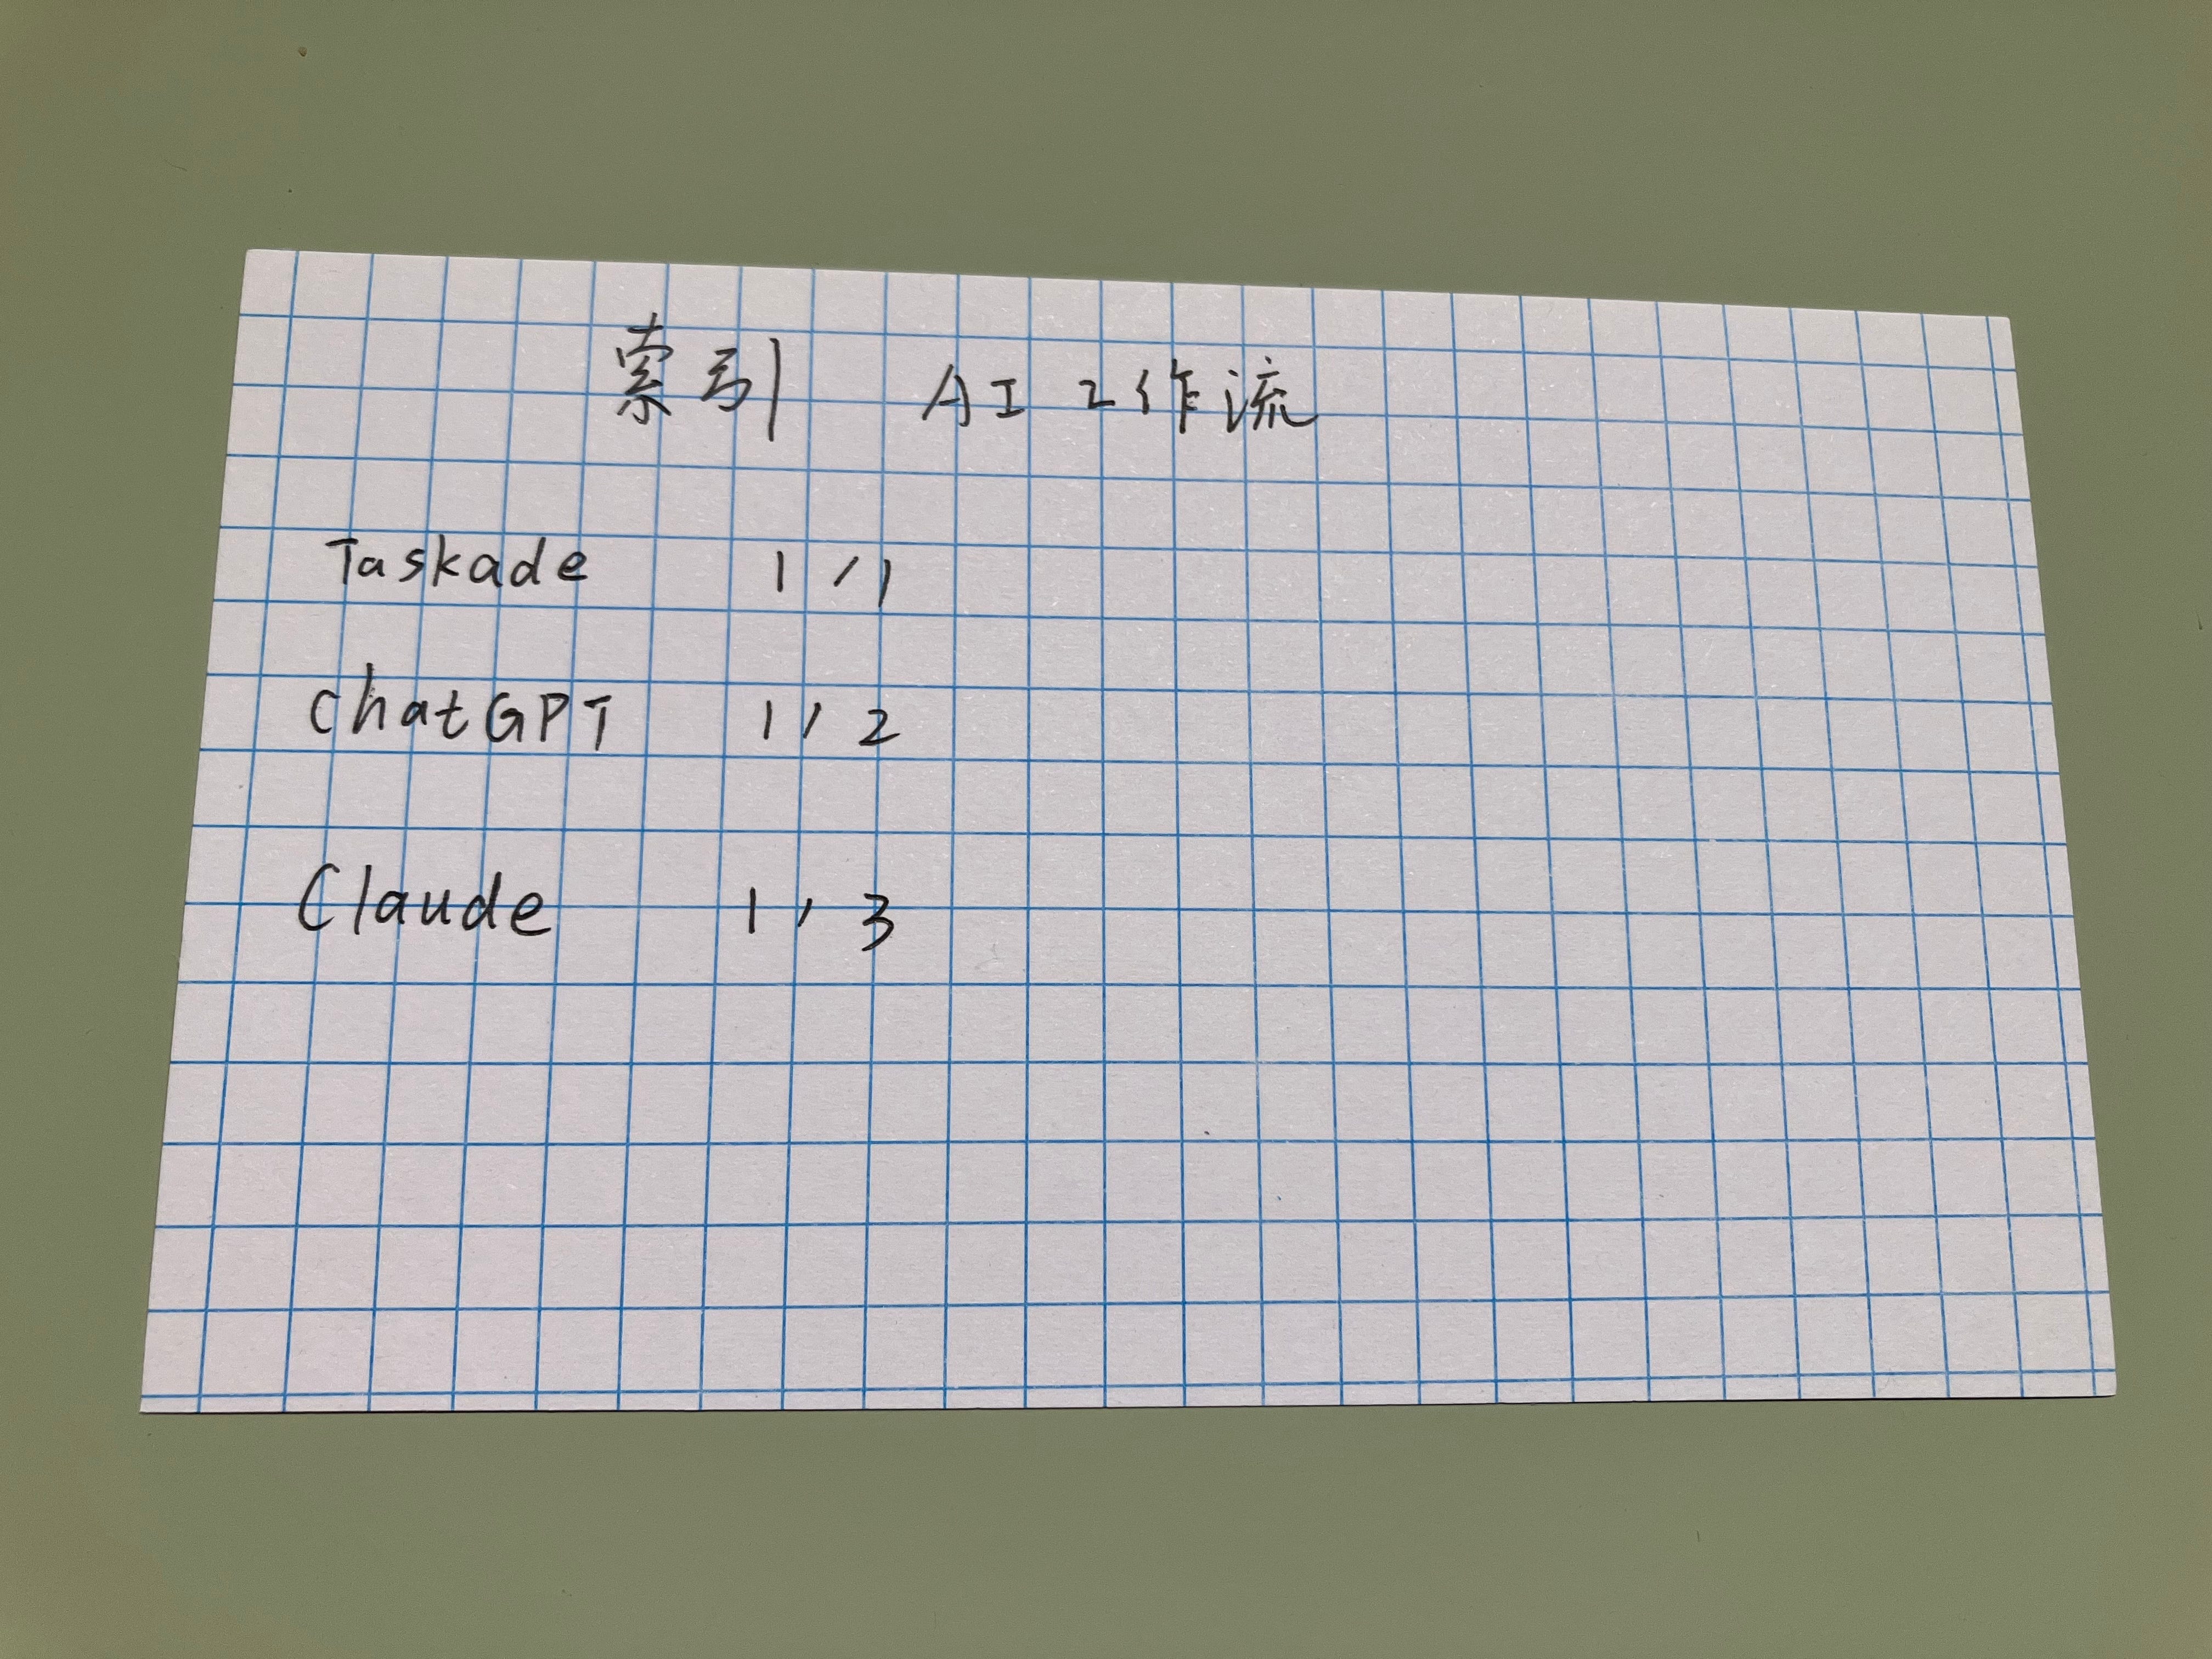 索引 AI 工作流
Taskade 1/1
ChatGPT 1/2
Claude 1/3